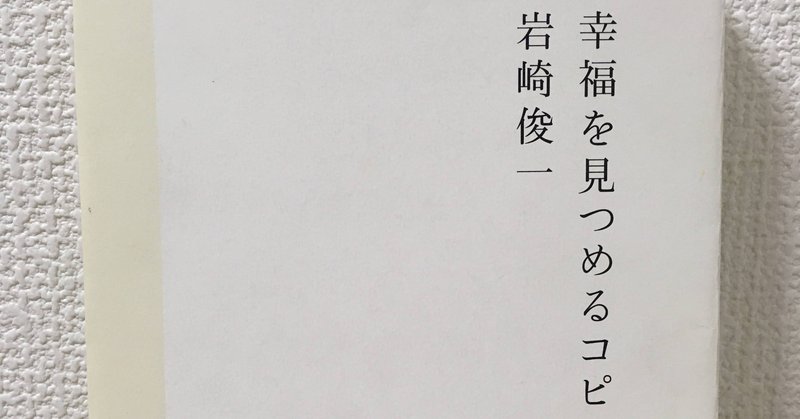 幸福を見つめるコピ
岩崎俊一